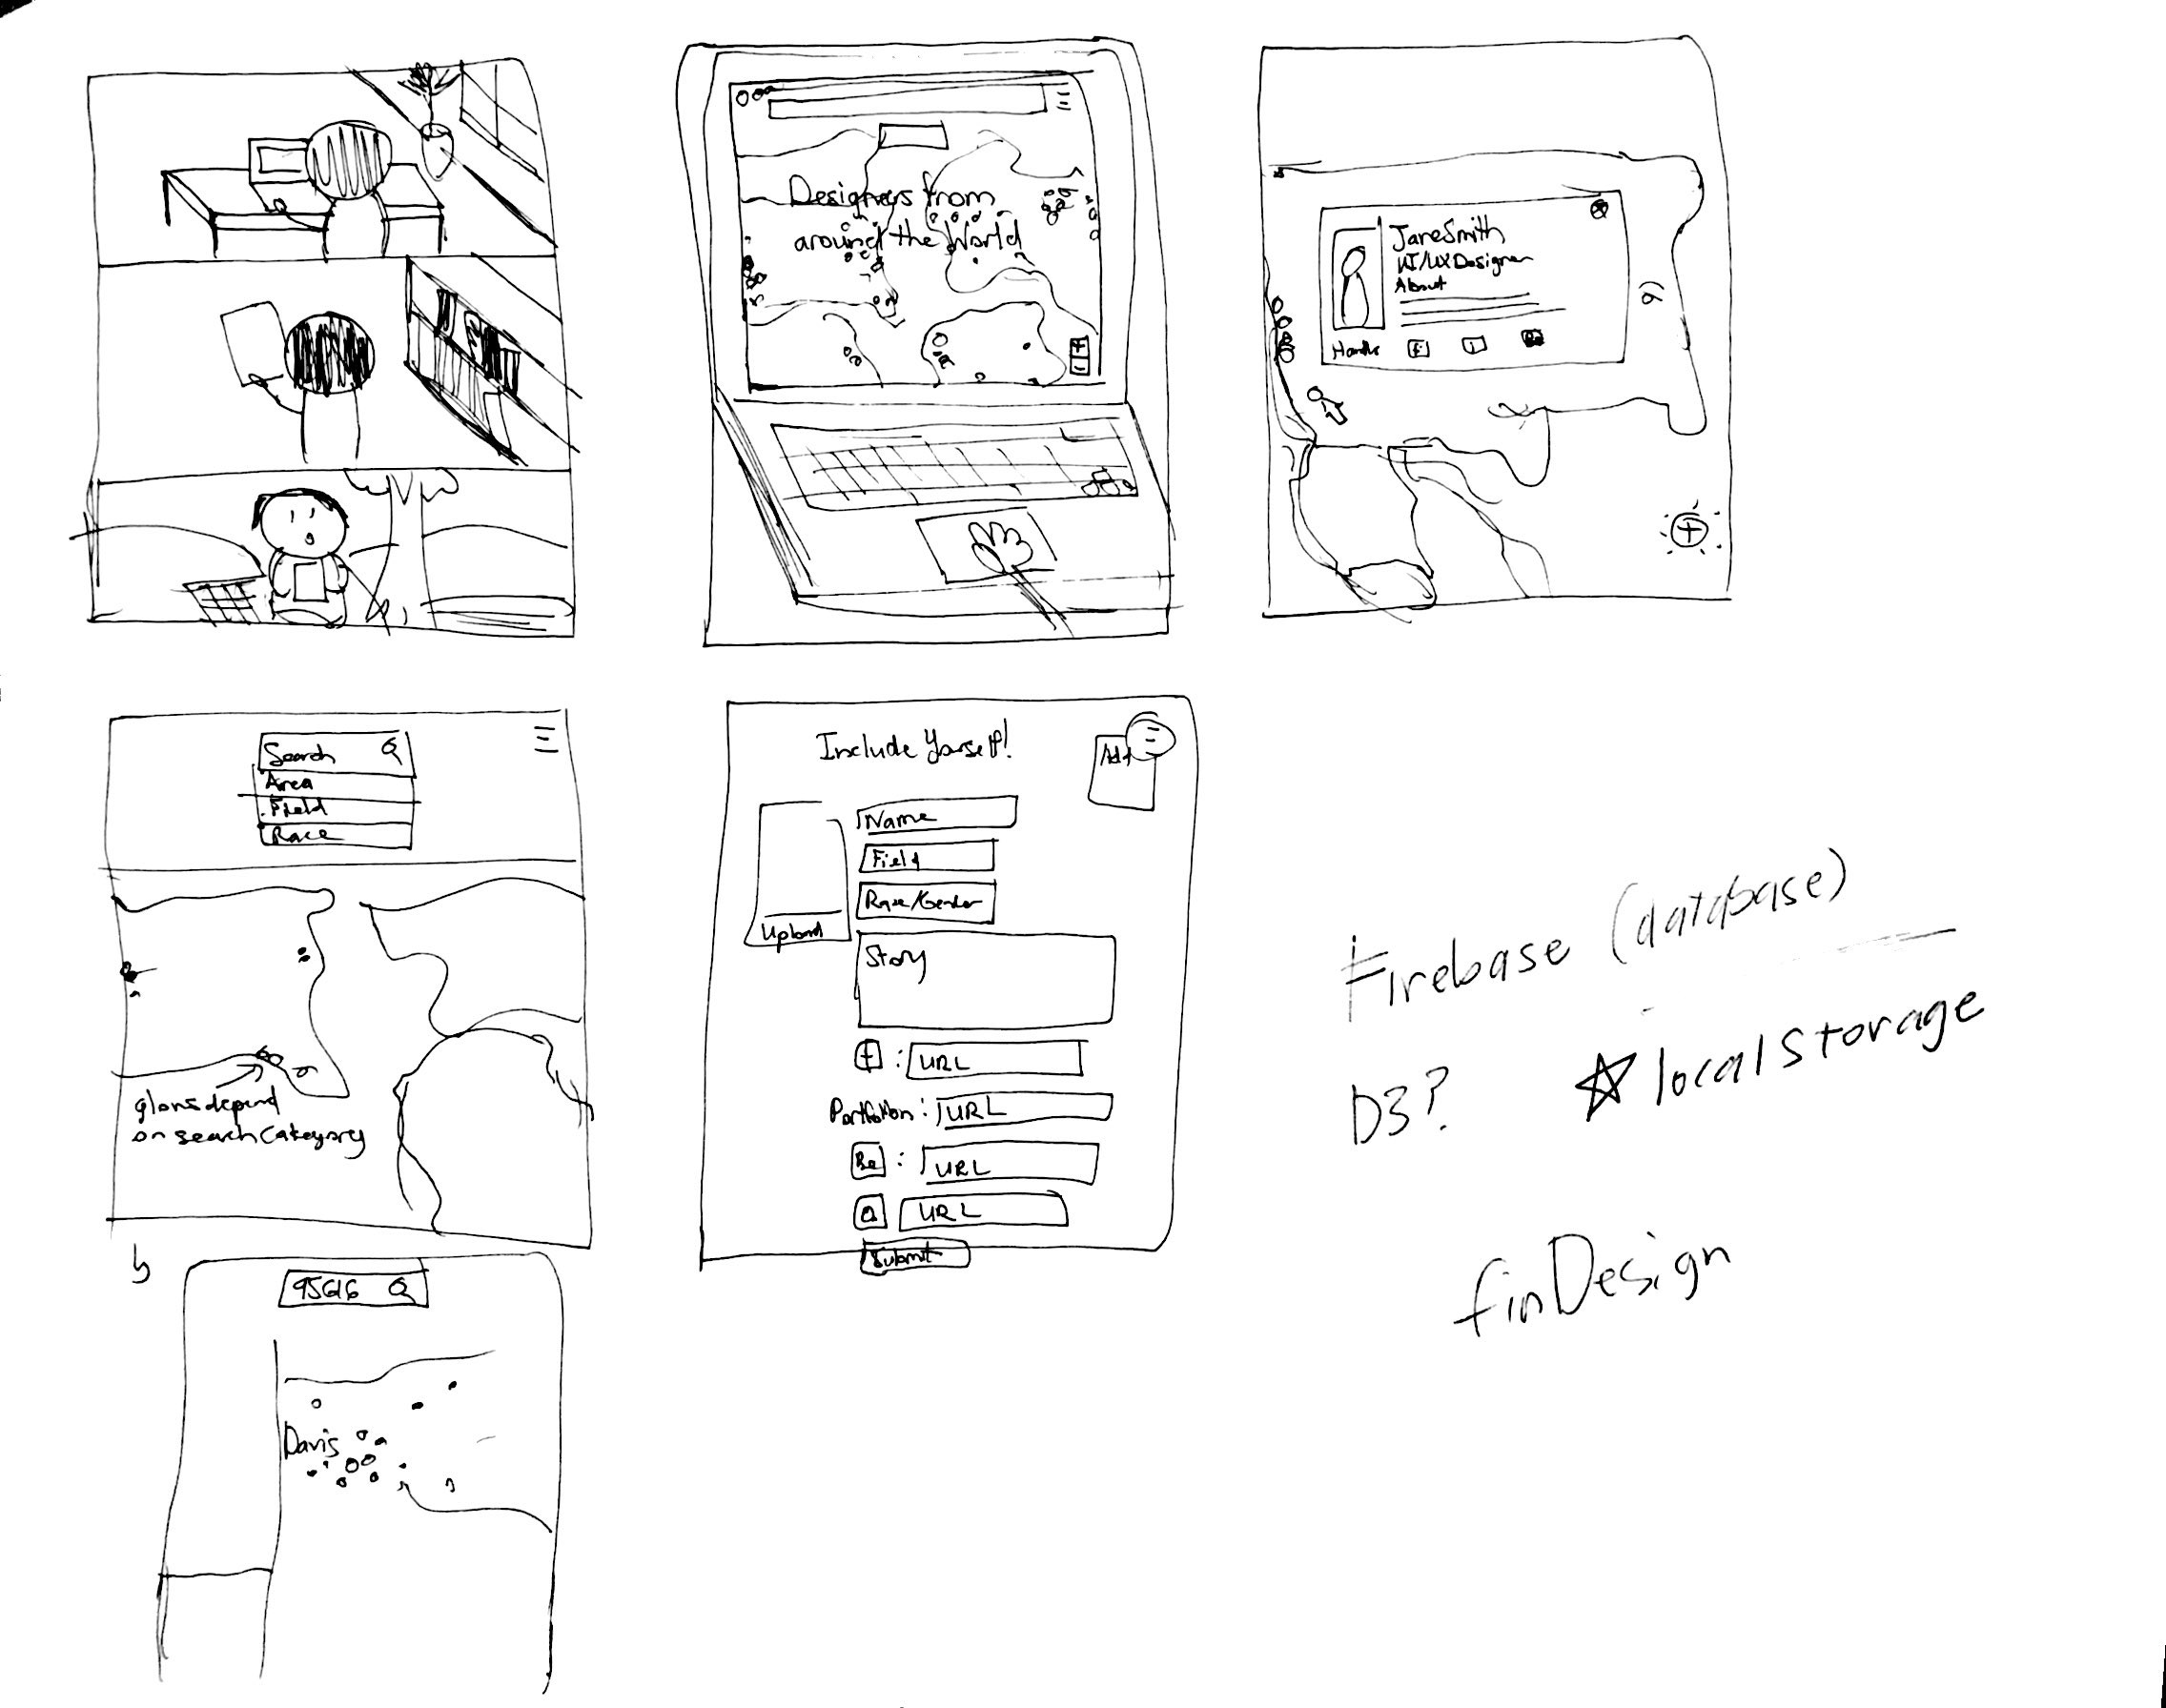 Designers from
around the World
Jane Smith
UI/UX Designer
About
Search
Area
Field
Race
glows depend
on search category
95616
Davis
Include Yourself!
Add
Name
Field
Race/Gender
Upload
Story
f : URL
: URL
Be : URL
URL
Submit
Firebase (database)
D3? ☆ localStorage
finDesign